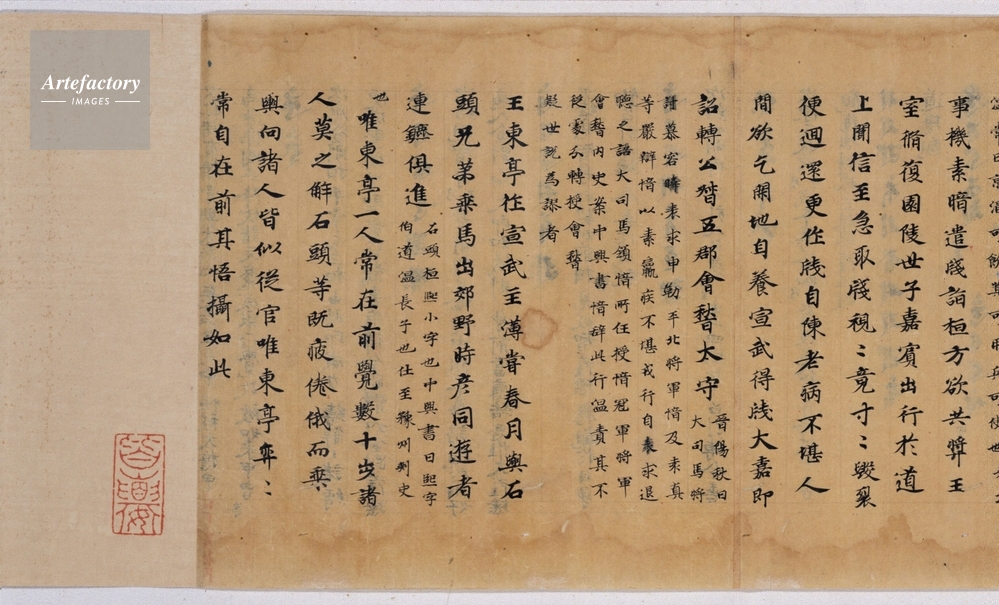 事機素暗遣牋詣桓方欲共獎王
室脩復園陵世子嘉賓出行於道
上聞信至急取牋視〻竟寸〻毀裂
便迴還更作牋自陳老病不堪人
間欲乞閑地自養宣武得牋大嘉即
詔轉公督五郡會稽太守
晉陽秋曰
大司馬將
討慕容暐表求申勒平北將軍愔及袁真
等嚴辯愔以素羸疾不堪戎行自表求退
聽之詔大司馬領愔所任授愔冠軍將軍
會稽內史案中興書愔辭此行溫責其不
從處分轉授會稽
疑世說為謬者
王東亭作宣武主薄嘗春月與石
頭兄弟乘馬出郊野時彥同遊者
連鑣俱進
石頭桓熙小字也中興書曰熙字
伯道溫長子也仕至豫州刾史
也
唯東亭一人常在前覺數十步諸
人莫之解石頭等既疲倦俄而乘
輿向諸人皆似從官唯東亭弈〻
常自在前其悟攝如此
Artefactory
IMAGES